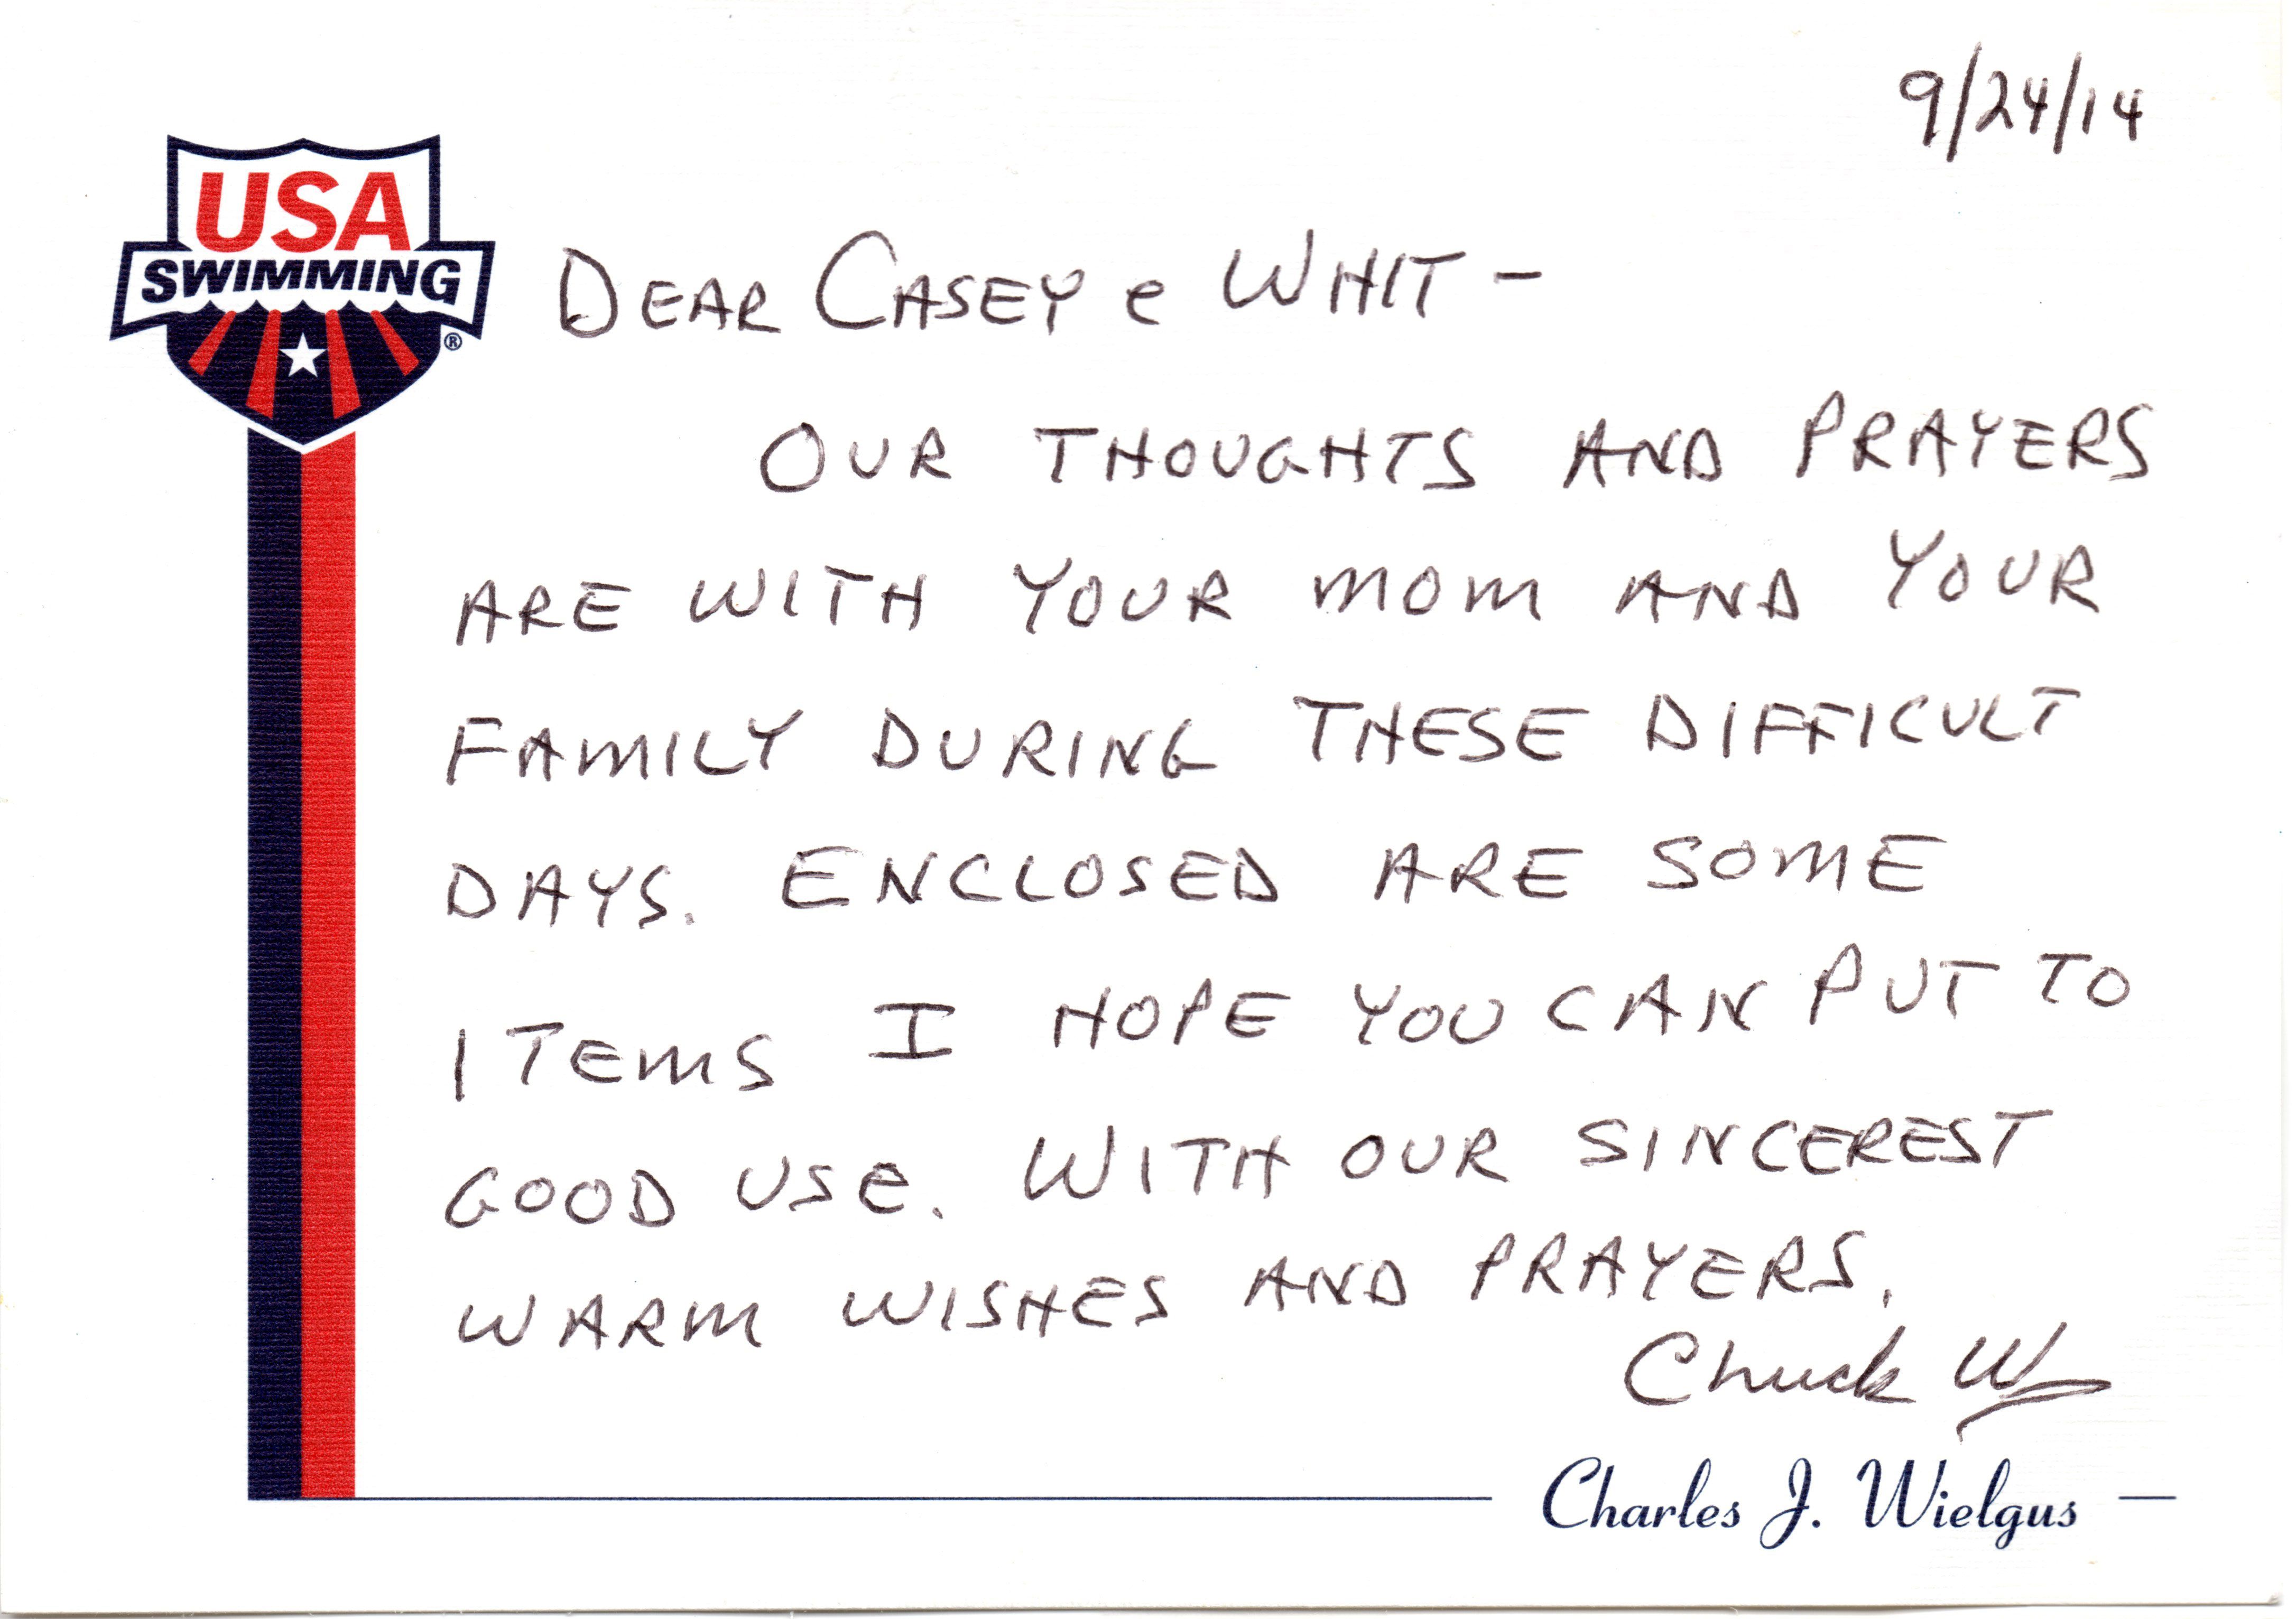 9/24/14
USA
SWIMMING
®
DEAR CASEY e WHIT -
OUR THOUGHTS AND PRAYERS
ARE WITH YOUR MOM AND YOUR
FAMILY DURING THESE DIFFICULT
DAYS. ENCLOSED ARE SOME
ITEMS I HOPE YOU CAN PUT TO
GOOD USE. WITH OUR SINCEREST
WARM WISHES AND PRAYERS,
Chuck W
Charles J. Wielgus